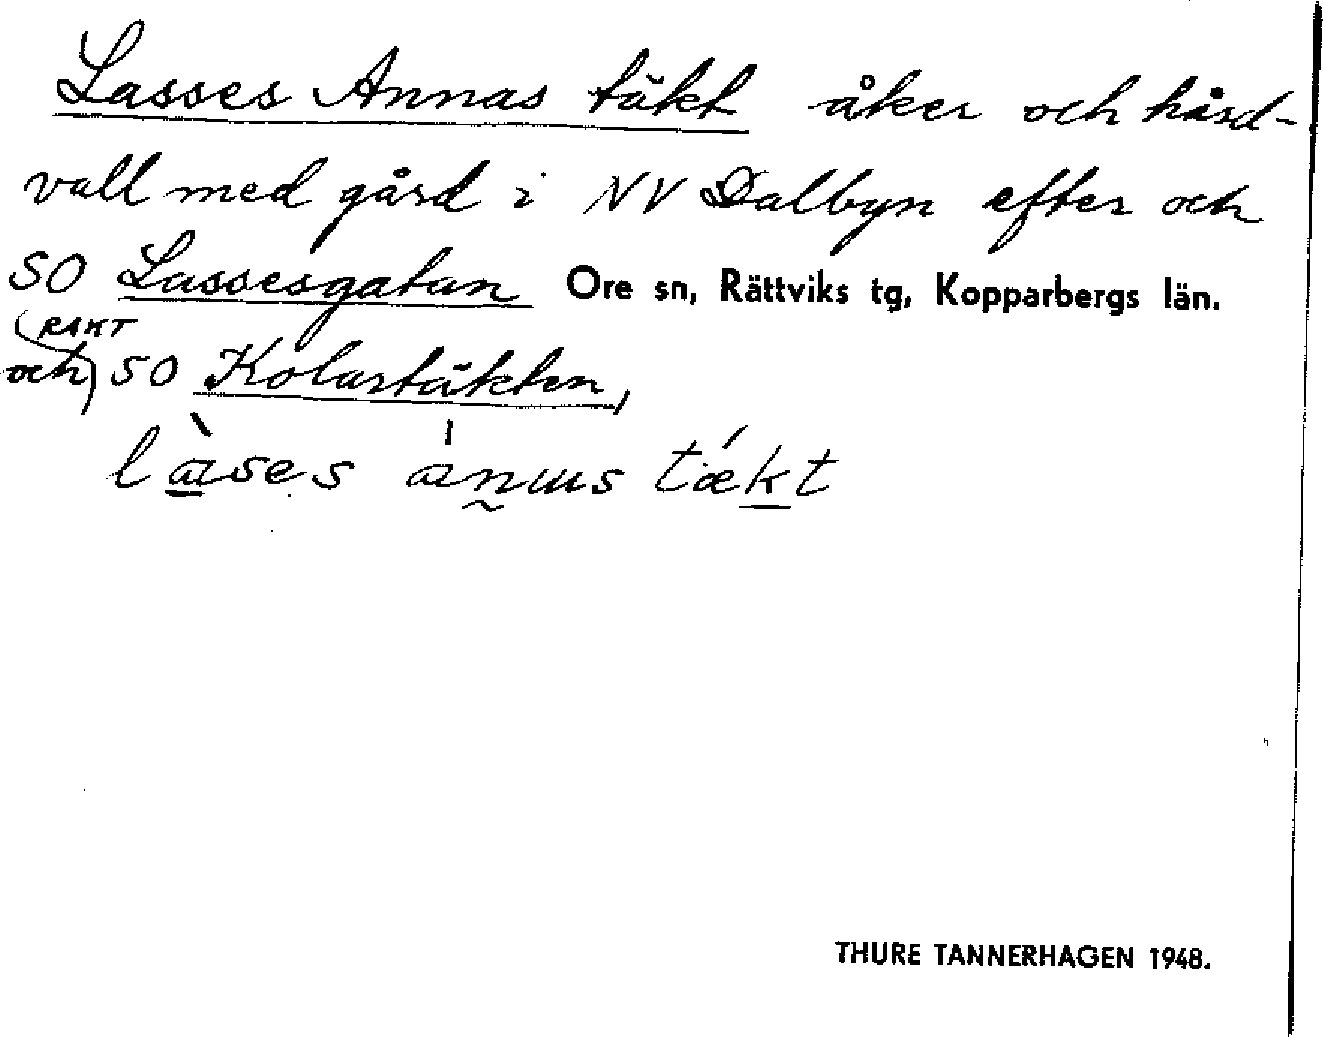 Lasses Annas täkt åker och hård-
vall med gård i NV Dalbyn efter och
SO Lassesgatan Ore sn, Rättviks tg, Kopparbergs län.
RAKT
och SO Kolartäkten,
THURE TANNERHAGEN 1948.